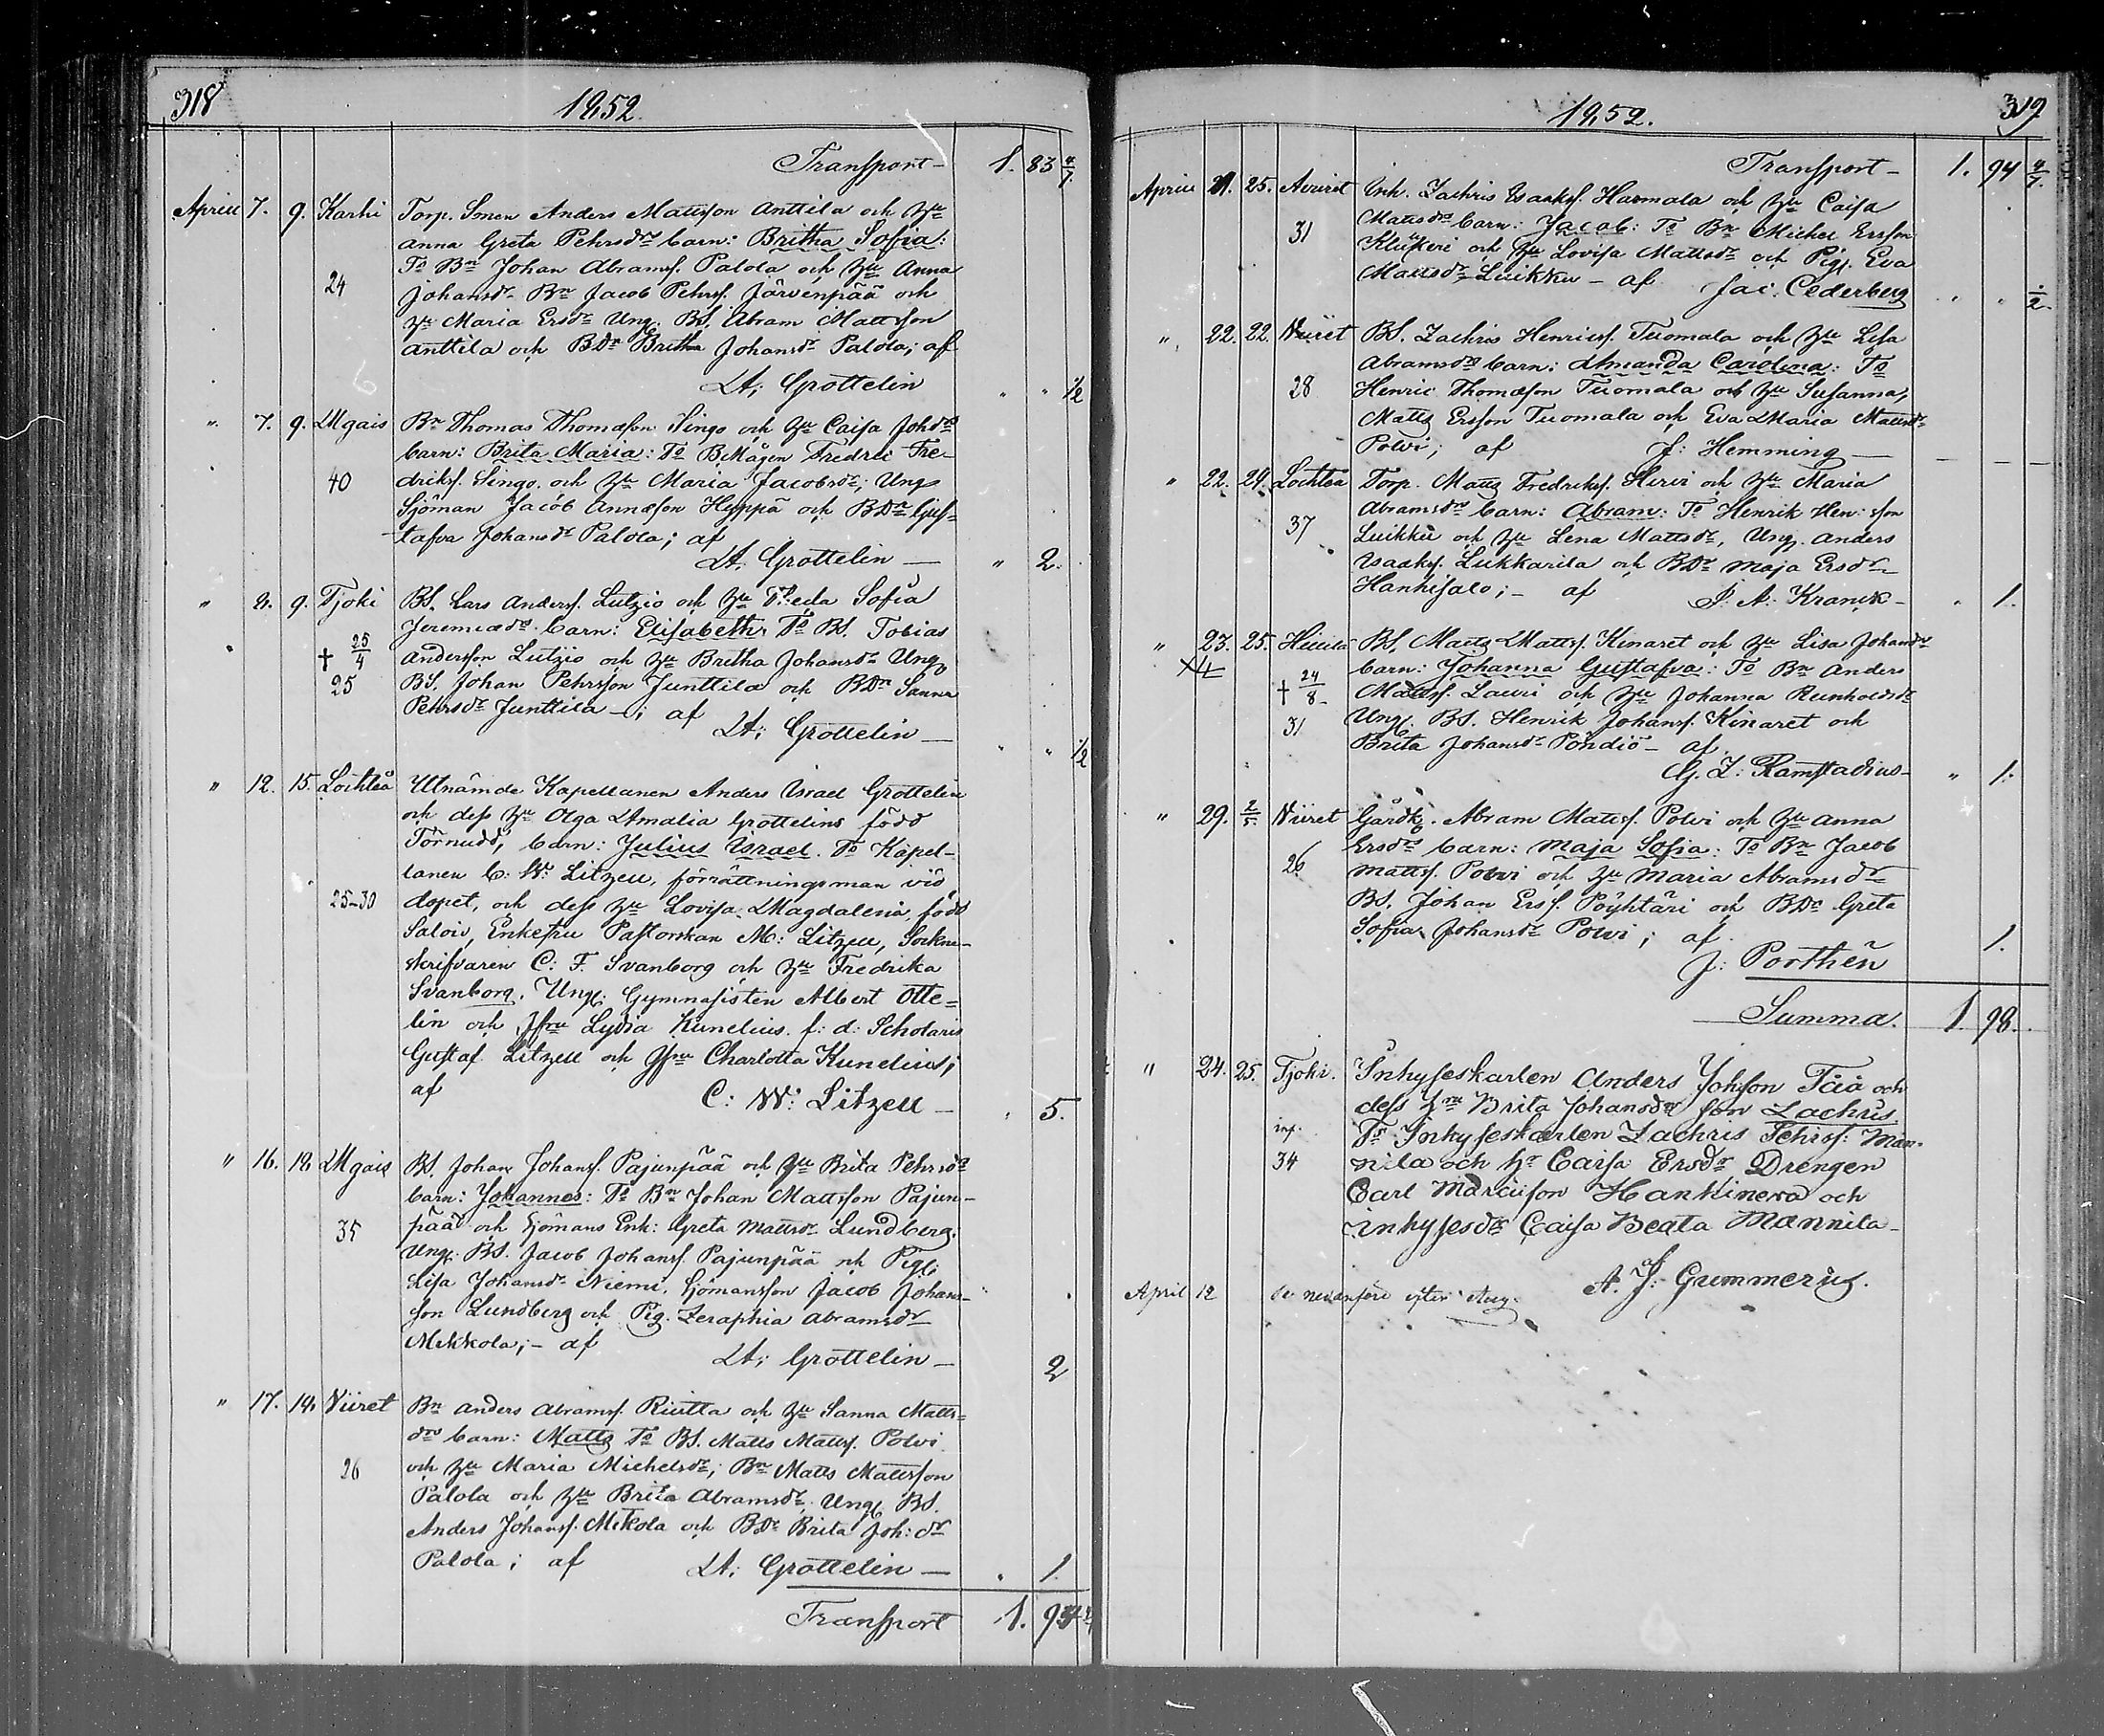 318
1852.
Transport – 1. 83 4/7.
April 7. 9. Karhi Torp. Smen Anders Mattsson Anttila och Hu
Anna Greta Pehrsdr barn: Britha Sofia:
To Bn Johan Abramss. Palola och Hu Anna
24
Johansdr Bn Jacob Pehrss. Järvenpää och
Hu Maria Ersdr Ung. BS. Abram Mattsson
Anttila och BDr Britha Johansdr Palola; af
A; Grottelin " " 1/2
" 7. 9. Mgais Bn Thomas Thomasson Singo och Hu Caisa Johdrs
barn: Brita Maria: To BMågen Fredric Fre-
40 driks. Singo och Hu Maria Jacobsdr; Ung
Sjöman Jacob Annæson Hyppä och BDr Gus-
tafva Johansdr Palola; af
A. Grottelin — " 2.
" 8. 9. Tjoki BS. Lars Anderss. Lutzio och Hu Sofia
Jeremiædrs barn: Elisabeth. To BS. Tobias
† 25/4 Andersson Lutzio och Hu Britha Johansdr Ung
25 BS. Johan Pehrsson Junttila och BDr Sanna
Pehrsdr Junttila –; af
A; Grottelin — " " 1/2
" 12. 15. Lochteå Utnämde Kapellanen Anders Israel Grottelin
och dess Hu Olga Amalia Grottelins född
Törnudd, barn: Julius Israel. To Kapel-
lanen C: W: Litzell, förrättningsman vid
25–30 dopet, och dess Hu Lovisa Magdalena, född
Salovi, Enkefru Pastorskan M: Litzell, Sockne-
skrifvaren C: F. Svanborg och Hu Fredrika
Svanborg. Ung: Gymnasisten Albert Otte=
lin och Jfru Lydia Kunelius. f: d: Scholaris
Gustaf Litzell och Jfru Charlotta Kunelius;
af C: W: Litzell – " 5.
" 16. 18. Mgais BS. Johan Johanss. Pajunpää och Hu Brita Pehrsdrs
barn: Johannes: To Bn Johan Mattsson Pajun-
35 pää och Sjömans Enk: Greta Mattsdr Lundberg.
Ung. BS. Jacob Johanss. Pajunpää och Pig.
Lisa Johansdr Niemi. Sjömansson Jacob Johans-
son Lundberg och Pig. Zeraphia Abramsdr
Mikkola; – af
A; Grottelin – 2
" 17. 18. Niiret Bn Anders Abramss. Riutta och Hu Sanna Matts=
drs barn: Matts To BS. Matts Matts. Polvi
26 och Hu Maria Michelsdr; Bn Matts Mattsson
Palola och Hu Brita Abramsdr. Ung. BS.
Anders Johanss. Mikola och BDr Brita Joh: dr
Palola; af A; Grottelin — " 1.
Transport 1. 94
1852.
319
Transport – 1. 94 4/7.
April 21. 25. Inh. Zachris Isaakss. Harmala och Hu Caisa
Mattsdrs barn: Jacob: To Bn Michel Ersson
31 och Hu Lovisa Mattsdr och Pig. Eva
Mattsdr Luikku – af Jac. Cederberg " " 1/2.
" 22. 22. Niiret BS. Zachris Henricss. Tuomala och Hu Lisa
Abramsdrs barn: Amanda Carolina: To
28 Henric Thomæson Tuomala och Hu Susanna,
Matts Ersson Tuomala och Eva Maria Mattsdr
Polvi; af J: Hemming —
" 22. 24. Lochteå Torp. Matts Fredrikss. Hirvi och Hu Maria
Abramsdrs barn: Abram: To Henrik Hen: sson
37 Luikku och Hu Lena Mattsdr, Ung. Anders
Isaakss. Lukkarila och BDr Maja Ersdr
Hankisalo; – af J. A: Kranck – " 1.
" 23. 25. BS. Matts Mattss. Kinaret och Hu Lisa Johansdr
barn: Johanna Gustafva: To Bn Anders
† 24/8 Mattss. Lauri och Hu Johanna Reinholdsdr
31 Ung. BS. Henrik Johanss. Kinaret och
Brita Johansdr Pöndiö – af
G. Z: Ramstadius – " 1.
" 29. 2/5. Niiret Gårdk. Abram Matss. Polvi och Hu Anna
Ersdrs barn: Maja Sofia: To Bn Jacob
26 Mattss. Polvi och Hu Maria Abramsdr
BS. Johan Erss. Pöyhtäri och BDr Greta
Sofia Johansdr Polvi; af
J: Porthén 1.
Summa. 1. 98.
" 24. 25. Tjoki. Inhyseskarlen Anders Johsson och
dess Hu Brita Johansdr son Zachris
inh. To Inhyseskarlen Zachris Män-
34 nila och Hr Caisa Ersdr Drengen
Carl Marcusson Hankineva och
inhysesdr Caisa Beata Mannila –
af
A. J: Gummerus.
April 12 Se nedanföre efter Aug.